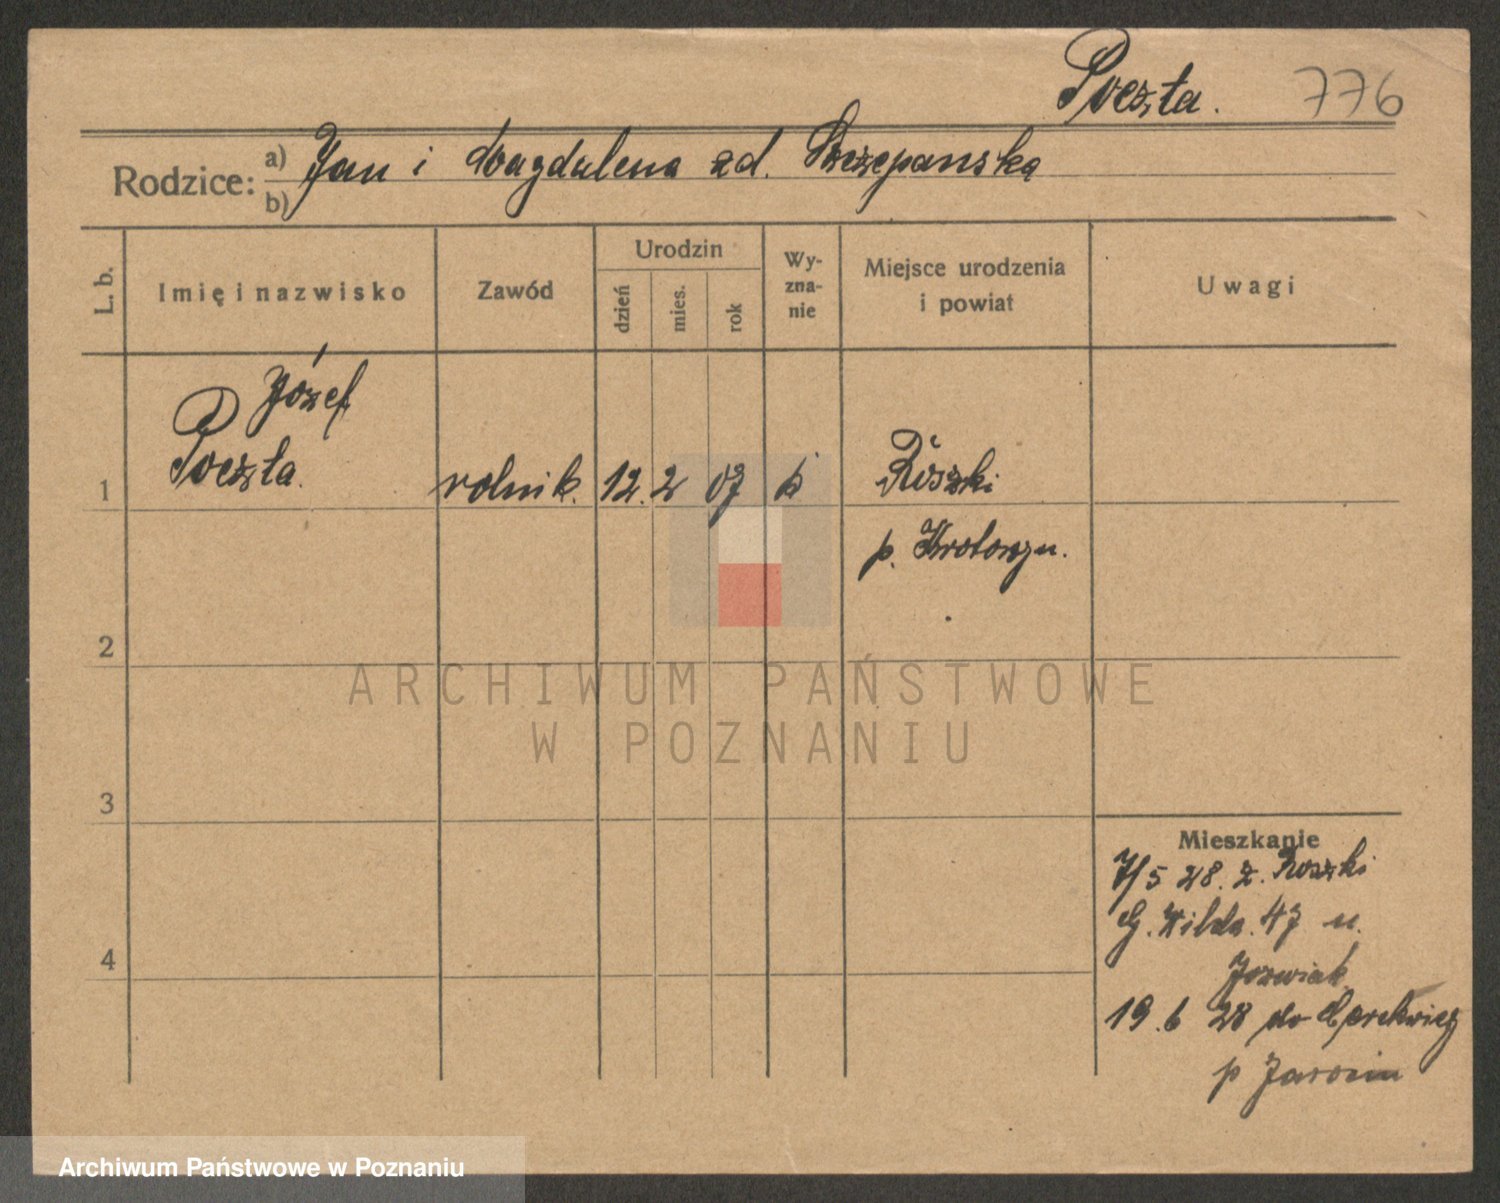 Poczta. 776
Rodzice: a) Jan i Magdalena zd. Szczepanska
b)
L. b. Imię i nazwisko Zawód Urodzin Wy-zna-nie Miejsce urodzenia i powiat Uwagi
dzień mies. rok
Józef
1 Poczta. rolnik. 12. 2 07 k Roszki
p. Krotoszyn.
2
ARCHIWUM PAŃSTWOWE
W POZNANIU
3
Mieszkanie
7/5 28. z. Roszki
G. Wilda. 47 u.
4 Jozwiak
19. 6 28 do Cerekwicy
p Jarocin
Archiwum Państwowe w Poznaniu